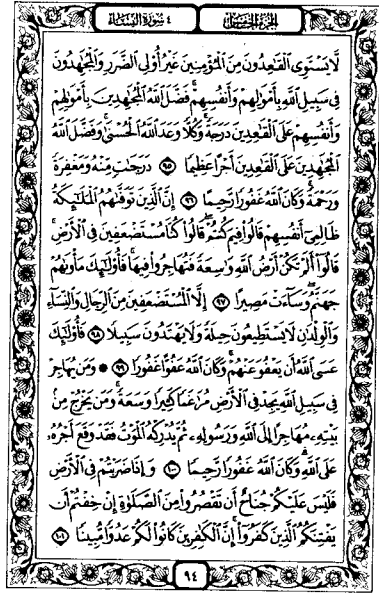 الجزء الخامس
٤ سورة النساء
لَّا يَسْتَوِي الْقَاعِدُونَ مِنَ الْمُؤْمِنِينَ غَيْرُ أُولِي الضَّرَرِ وَالْمُجَاهِدُونَ
فِي سَبِيلِ اللَّهِ بِأَمْوَالِهِمْ وَأَنفُسِهِمْ فَضَّلَ اللَّهُ الْمُجَاهِدِينَ بِأَمْوَالِهِمْ
وَأَنفُسِهِمْ عَلَى الْقَاعِدِينَ دَرَجَةً وَكُلًّا وَعَدَ اللَّهُ الْحُسْنَىٰ وَفَضَّلَ اللَّهُ
الْمُجَاهِدِينَ عَلَى الْقَاعِدِينَ أَجْرًا عَظِيمًا ٩٥ دَرَجَاتٍ مِّنْهُ وَمَغْفِرَةً
وَرَحْمَةً وَكَانَ اللَّهُ غَفُورًا رَّحِيمًا ٩٦ إِنَّ الَّذِينَ تَوَفَّاهُمُ الْمَلَائِكَةُ
ظَالِمِي أَنفُسِهِمْ قَالُوا فِيمَ كُنتُمْ قَالُوا كُنَّا مُسْتَضْعَفِينَ فِي الْأَرْضِ
قَالُوا أَلَمْ تَكُنْ أَرْضُ اللَّهِ وَاسِعَةً فَتُهَاجِرُوا فِيهَا فَأُولَٰئِكَ مَأْوَاهُمْ
جَهَنَّمُ وَسَاءَتْ مَصِيرًا ٩٧ إِلَّا الْمُسْتَضْعَفِينَ مِنَ الرِّجَالِ وَالنِّسَاءِ
وَالْوِلْدَانِ لَا يَسْتَطِيعُونَ حِيلَةً وَلَا يَهْتَدُونَ سَبِيلًا ٩٨ فَأُولَٰئِكَ
عَسَى اللَّهُ أَن يَعْفُوَ عَنْهُمْ وَكَانَ اللَّهُ عَفُوًّا غَفُورًا ٩٩ ۞ وَمَن يُهَاجِرْ
فِي سَبِيلِ اللَّهِ يَجِدْ فِي الْأَرْضِ مُرَاغَمًا كَثِيرًا وَسَعَةً وَمَن يَخْرُجْ مِن
بَيْتِهِ مُهَاجِرًا إِلَى اللَّهِ وَرَسُولِهِ ثُمَّ يُدْرِكْهُ الْمَوْتُ فَقَدْ وَقَعَ أَجْرُهُ
عَلَى اللَّهِ وَكَانَ اللَّهُ غَفُورًا رَّحِيمًا ١٠٠ وَإِذَا ضَرَبْتُمْ فِي الْأَرْضِ
فَلَيْسَ عَلَيْكُمْ جُنَاحٌ أَن تَقْصُرُوا مِنَ الصَّلَاةِ إِنْ خِفْتُمْ أَن
يَفْتِنَكُمُ الَّذِينَ كَفَرُوا إِنَّ الْكَافِرِينَ كَانُوا لَكُمْ عَدُوًّا مُّبِينًا ١٠١
٩٤